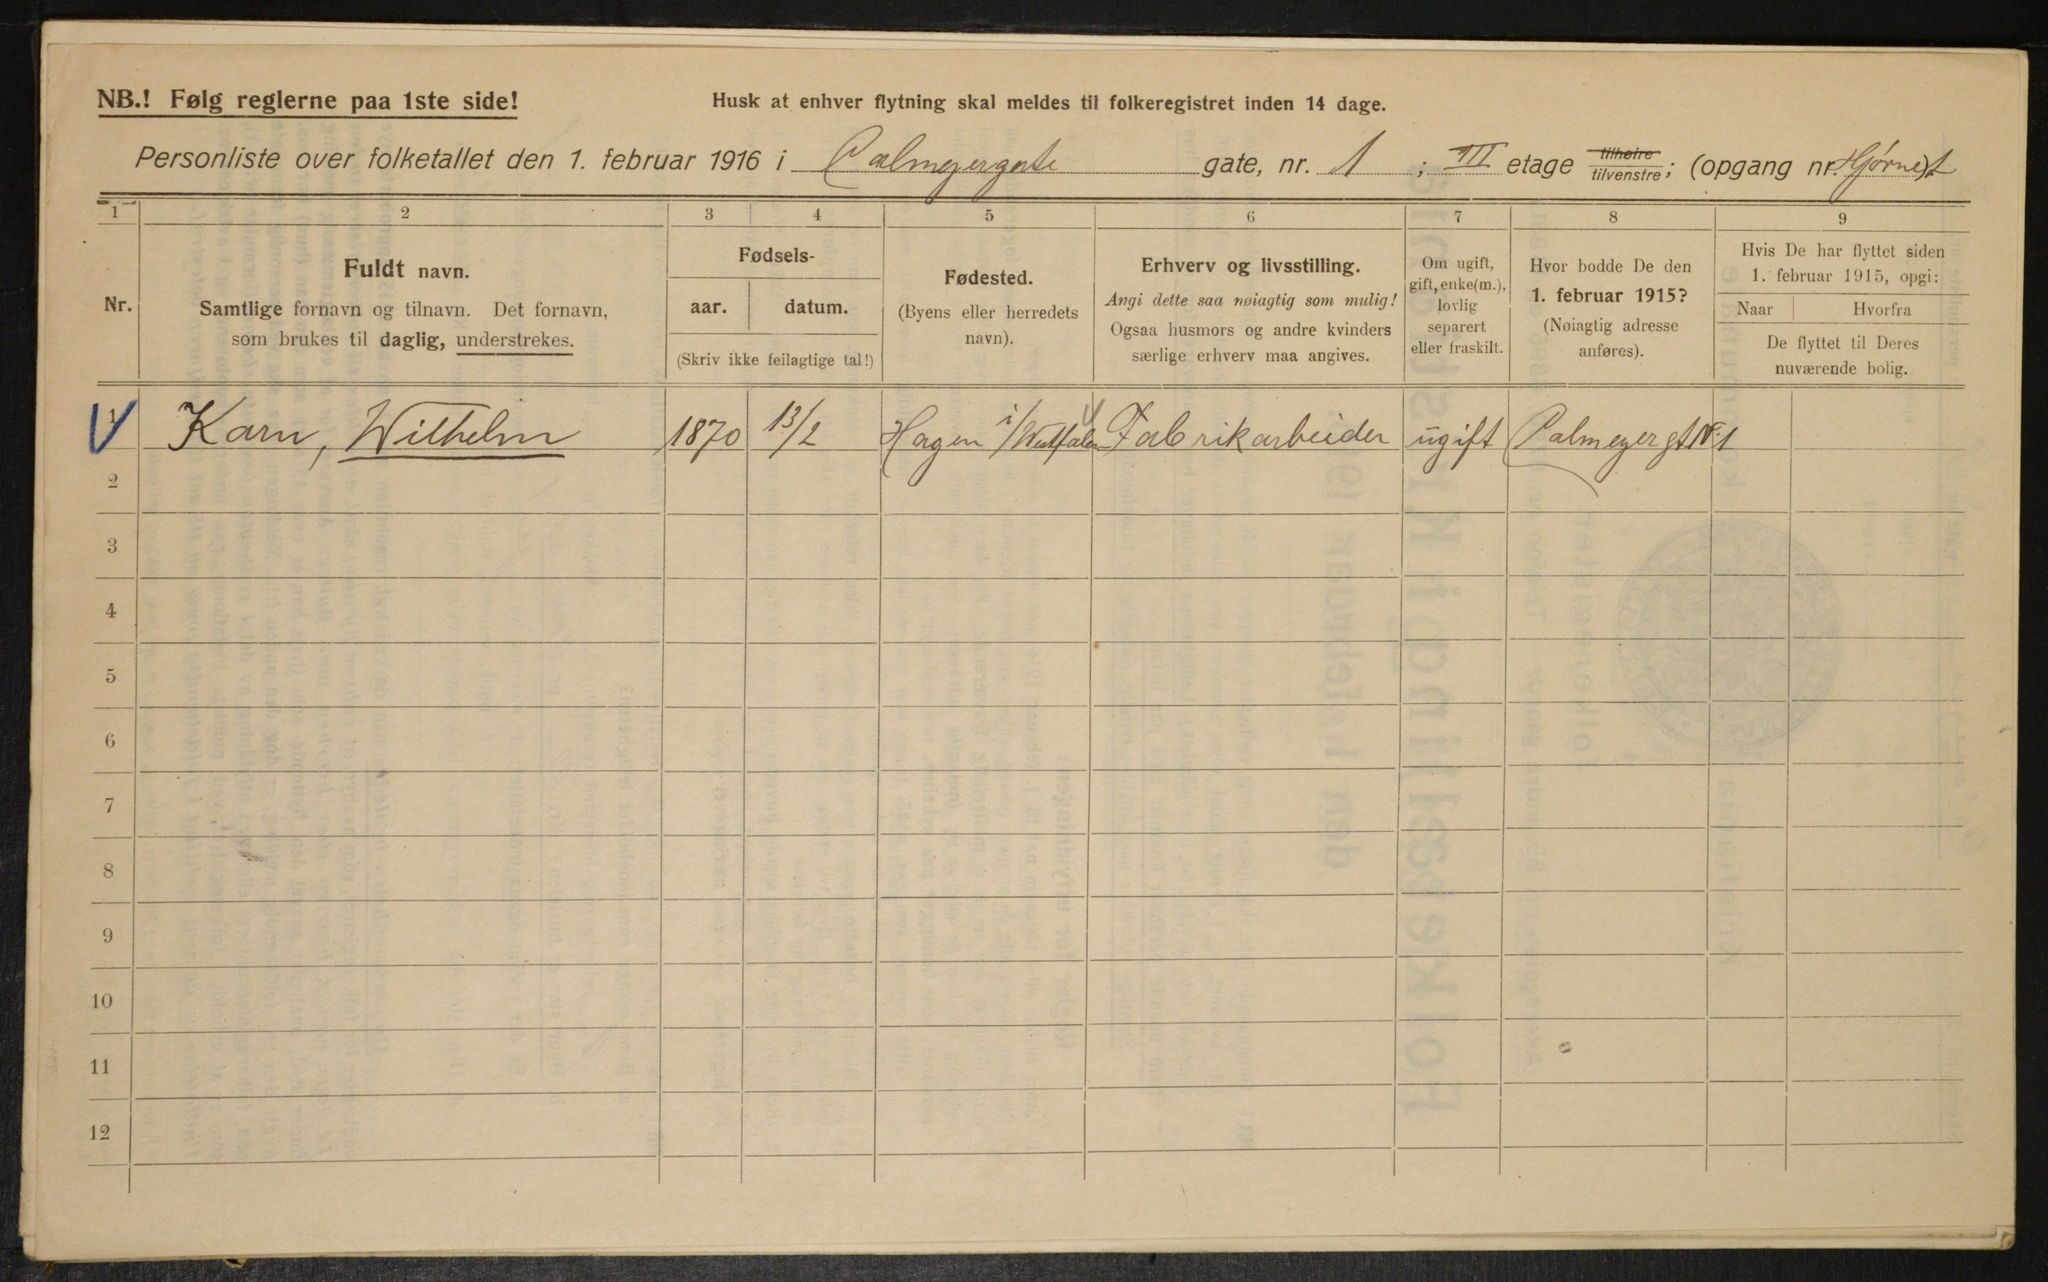 NB.! Følg reglerne paa 1ste side!
Husk at enhver flytning skal meldes til folkeregistret inden 14 dage.
Personliste over folketallet den 1. februar 1916 i Calmeyergate gate, nr. 1 ; III etage tilhøire tilvenstre; (opgang nr. Hjørnet)
1 2 3 4 5 6 7 8 9
Nr.
Fuldt navn.
Samtlige fornavn og tilnavn. Det fornavn,
som brukes til daglig, understrekes.
Fødsels-
aar. datum.
(Skriv ikke feilagtige tal!)
Fødested.
(Byens eller herredets
navn).
Erhverv og livsstilling.
Angi dette saa nøiagtig som mulig!
Ogsaa husmors og andre kvinders
særlige erhverv maa angives.
Om ugift,
gift, enke(m.),
lovlig
separert
eller fraskilt.
Hvor bodde De den
1. februar 1915?
(Nøiagtig adresse
anføres).
Hvis De har flyttet siden
1. februar 1915, opgi:
Naar Hvorfra
De flyttet til Deres
nuværende bolig.
1 Karn, Wilhelm 1870 13/2 Hagen i/Westfalen Fabrikarbeider ugift Calmeyergt No. 1
2
3
4
5
6
7
8
9
10
11
12